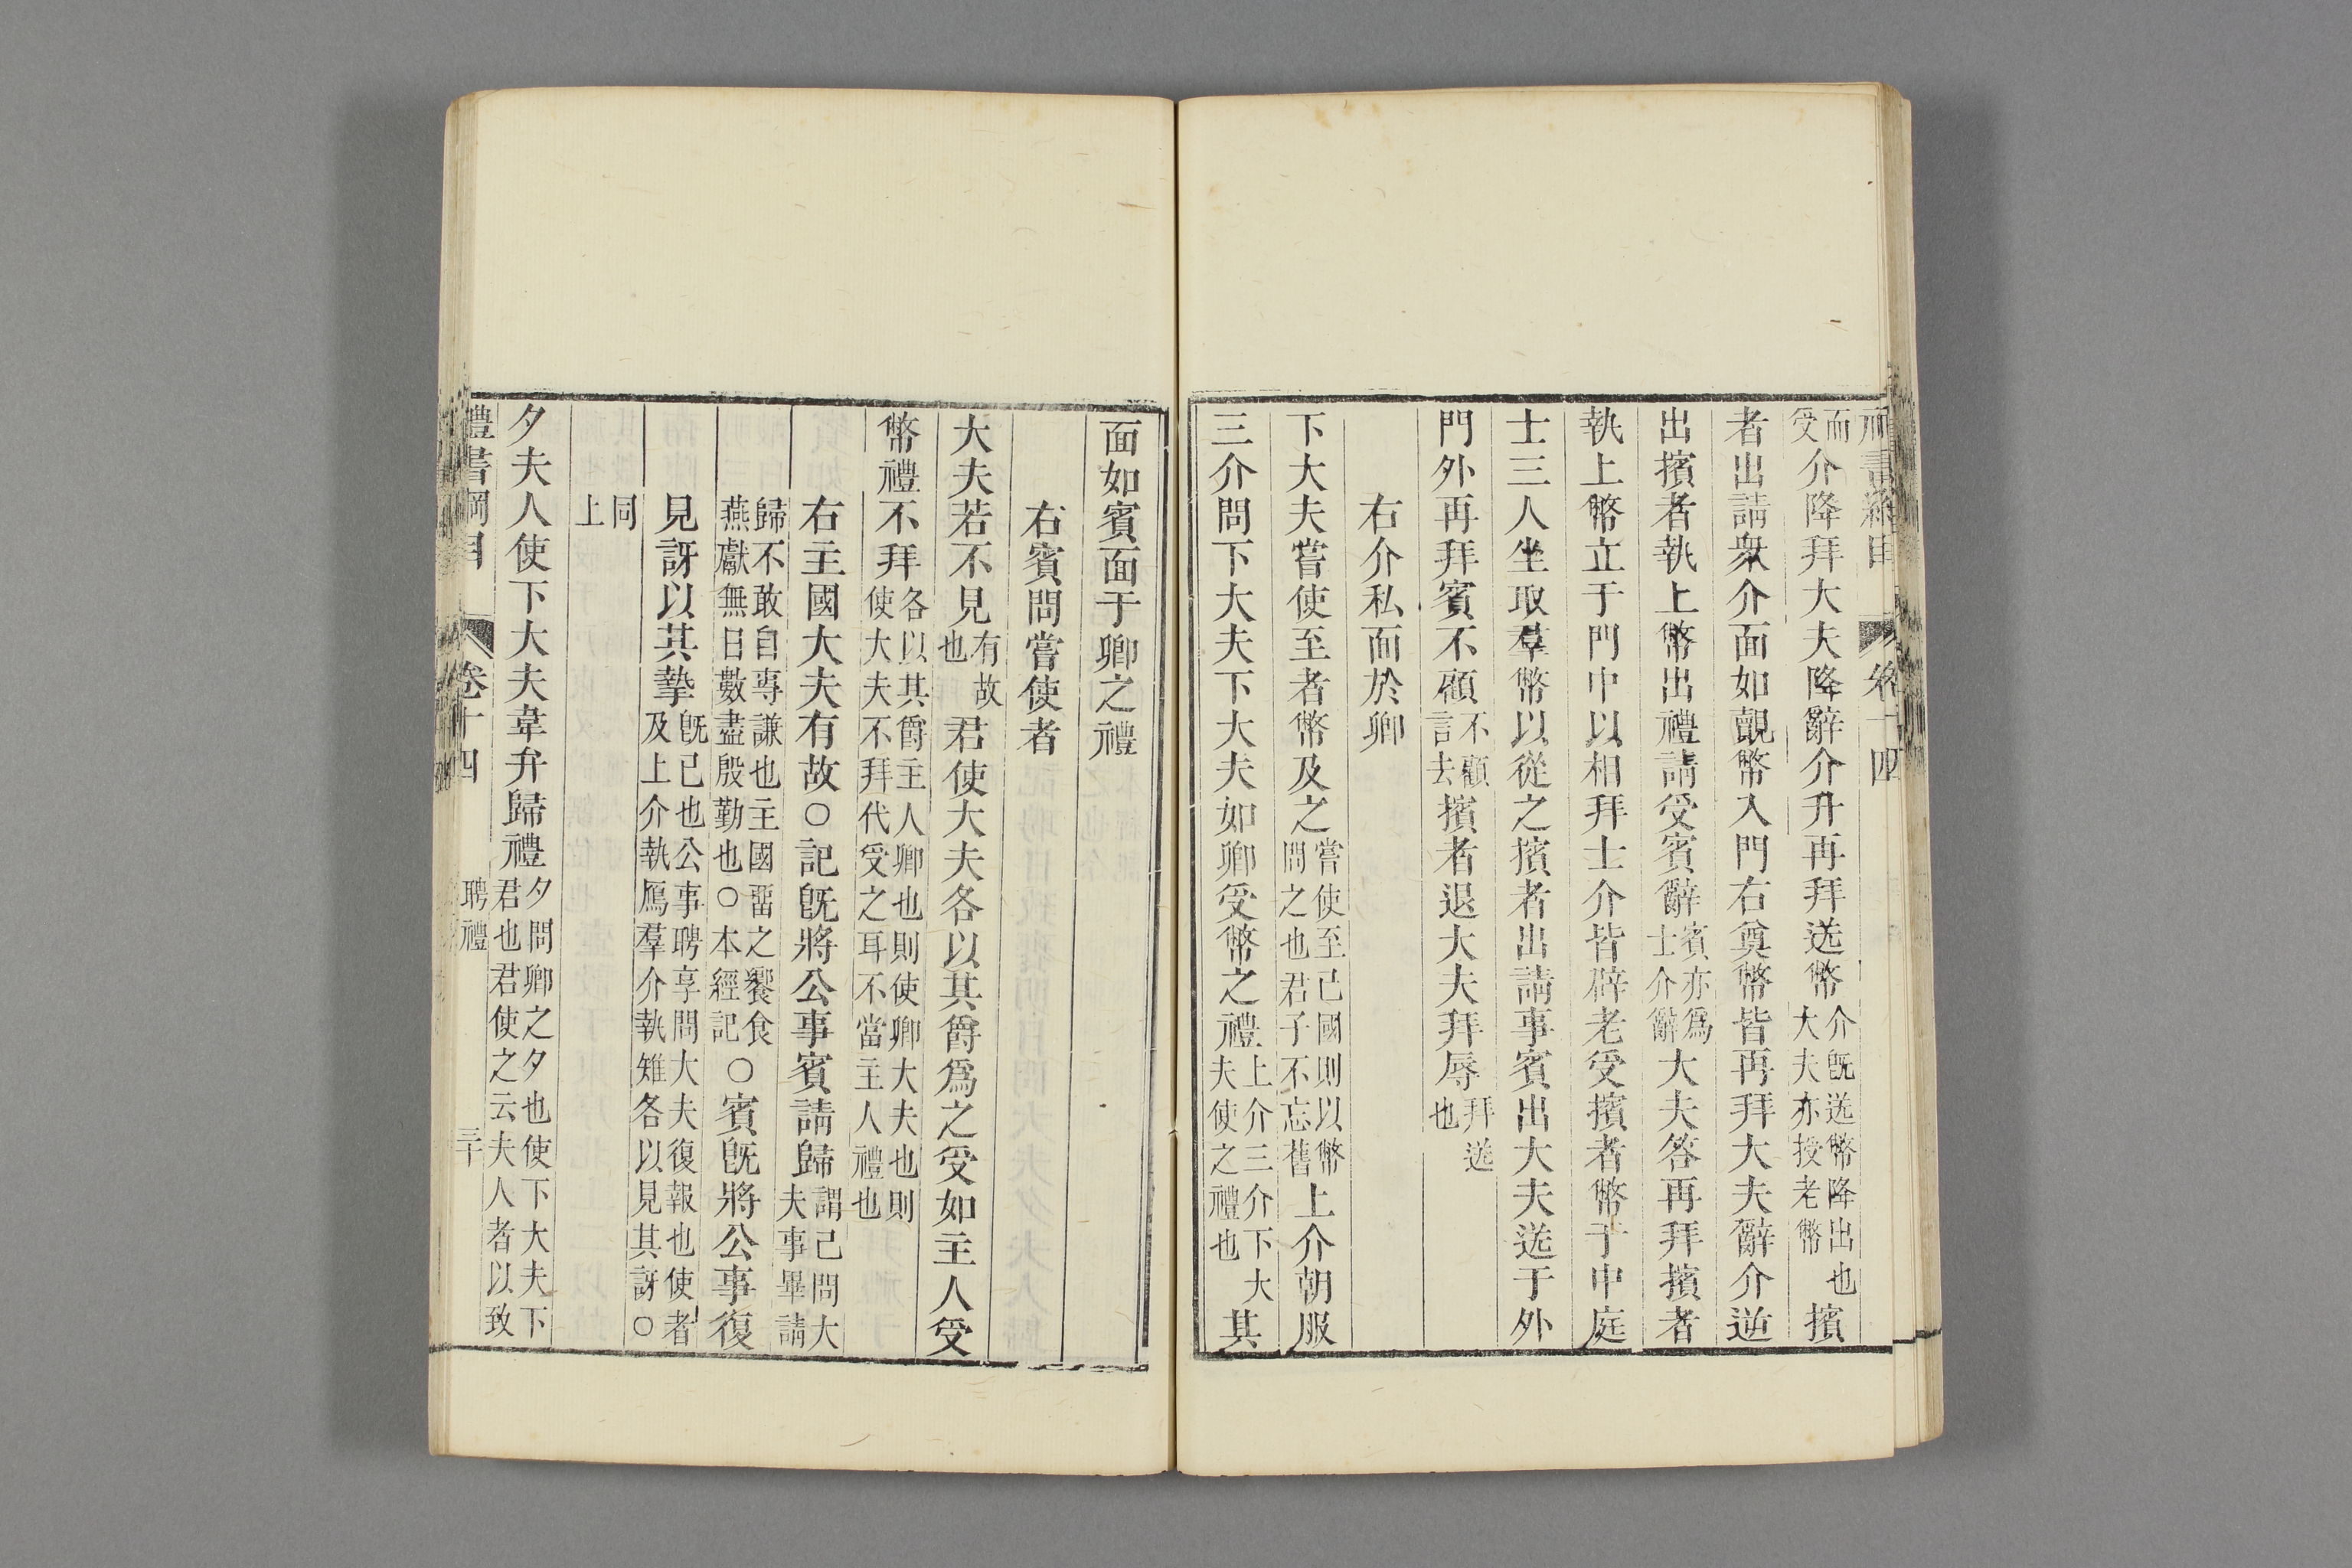 禮書綱目 卷十四
而受介降拜大夫降辭介升再拜送幣介既送幣降出也大夫亦授老幣擯
者出請衆介面如覿幣入門右奠幣皆再拜大夫辭介逆
出擯者執上幣出禮請受賓辭賓亦爲士介辭大夫答再拜擯者
執上幣立于門中以相拜士介皆辟老受擯者幣于中庭
士三人坐取羣幣以從之擯者出請事賓出大夫送于外
門外再拜賓不顧不顧言去擯者退大夫拜辱拜送也
右介私面於卿
下大夫嘗使至者幣及之嘗使至己國則以幣問之也君子不忘舊上介朝服
三介問下大夫下大夫如卿受幣之禮上介三介下大夫使之禮也其
面如賓面于卿之禮
右賓問嘗使者
大夫若不見有故也君使大夫各以其爵爲之受如主人受
幣禮不拜各以其爵主人卿也則使卿大夫也則使大夫不拜代受之耳不當主人禮也
右主國大夫有故○記既將公事賓請歸謂己問大夫事畢請
歸不敢自專謙也主國留之饗食燕獻無日數盡殷勤也○本經記○賓既將公事復
見訝以其摯既已也公事聘享問大夫復報也使者及上介執鴈羣介執雉各以見其訝○
同上
夕夫人使下大夫韋弁歸禮夕問卿之夕也使下大夫下君也君使之云夫人者以致
禮書綱目 卷十四 聘禮 三十